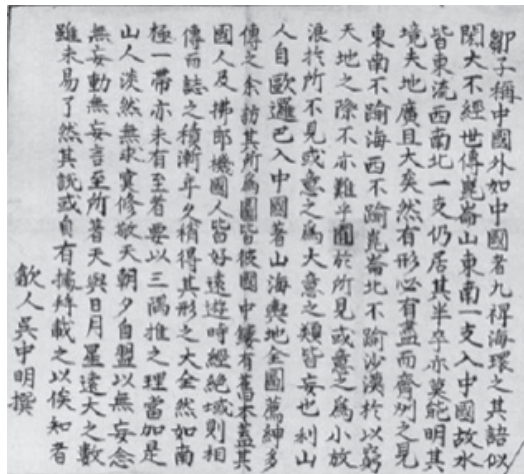 鄒子稱中國外如中國者九裨海環之其語似
閎大不經世傳崑崙山東南一支入中國故水
皆東流西南北一支仍居其半卒亦莫能明其
境夫地廣且大矣然有形必有盡而齊州之見
東南不踰海西不踰崑崙北不踰沙漠於以窮
天地之際不亦難乎囿於所見或意之為小放
浪於所不見或意之為大意之類皆妄也利山
人自歐邏巴入中國著山海輿地全圖薦紳多
傳之余訪其所為圖皆彼國中鏤有舊本蓋其
國人及拂郎機國人皆好遠遊時經絕域則相
傳而誌之積漸年久稍得其形之大全然如南
極一帶亦未有至者要以三隅推之理當如是
山人淡然無求實修敬天朝夕自盟以無妄念
無妄動無妄言至所著天與日月星遠大之數
雖未易了然其說或自有據并載之以俟知者
歙人吳中明撰